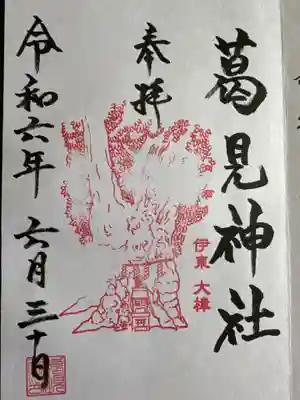 葛見神社
奉拝
伊東 大樟
令和六年 六月三十日